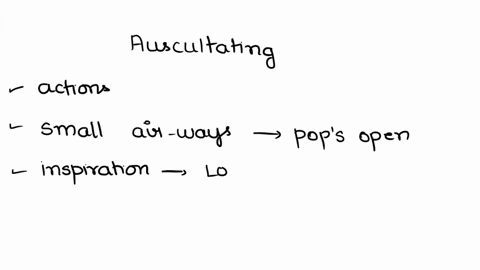 Auscultating
✓ actions
✓ small air-ways → pop's open
✓ inspiration → LO